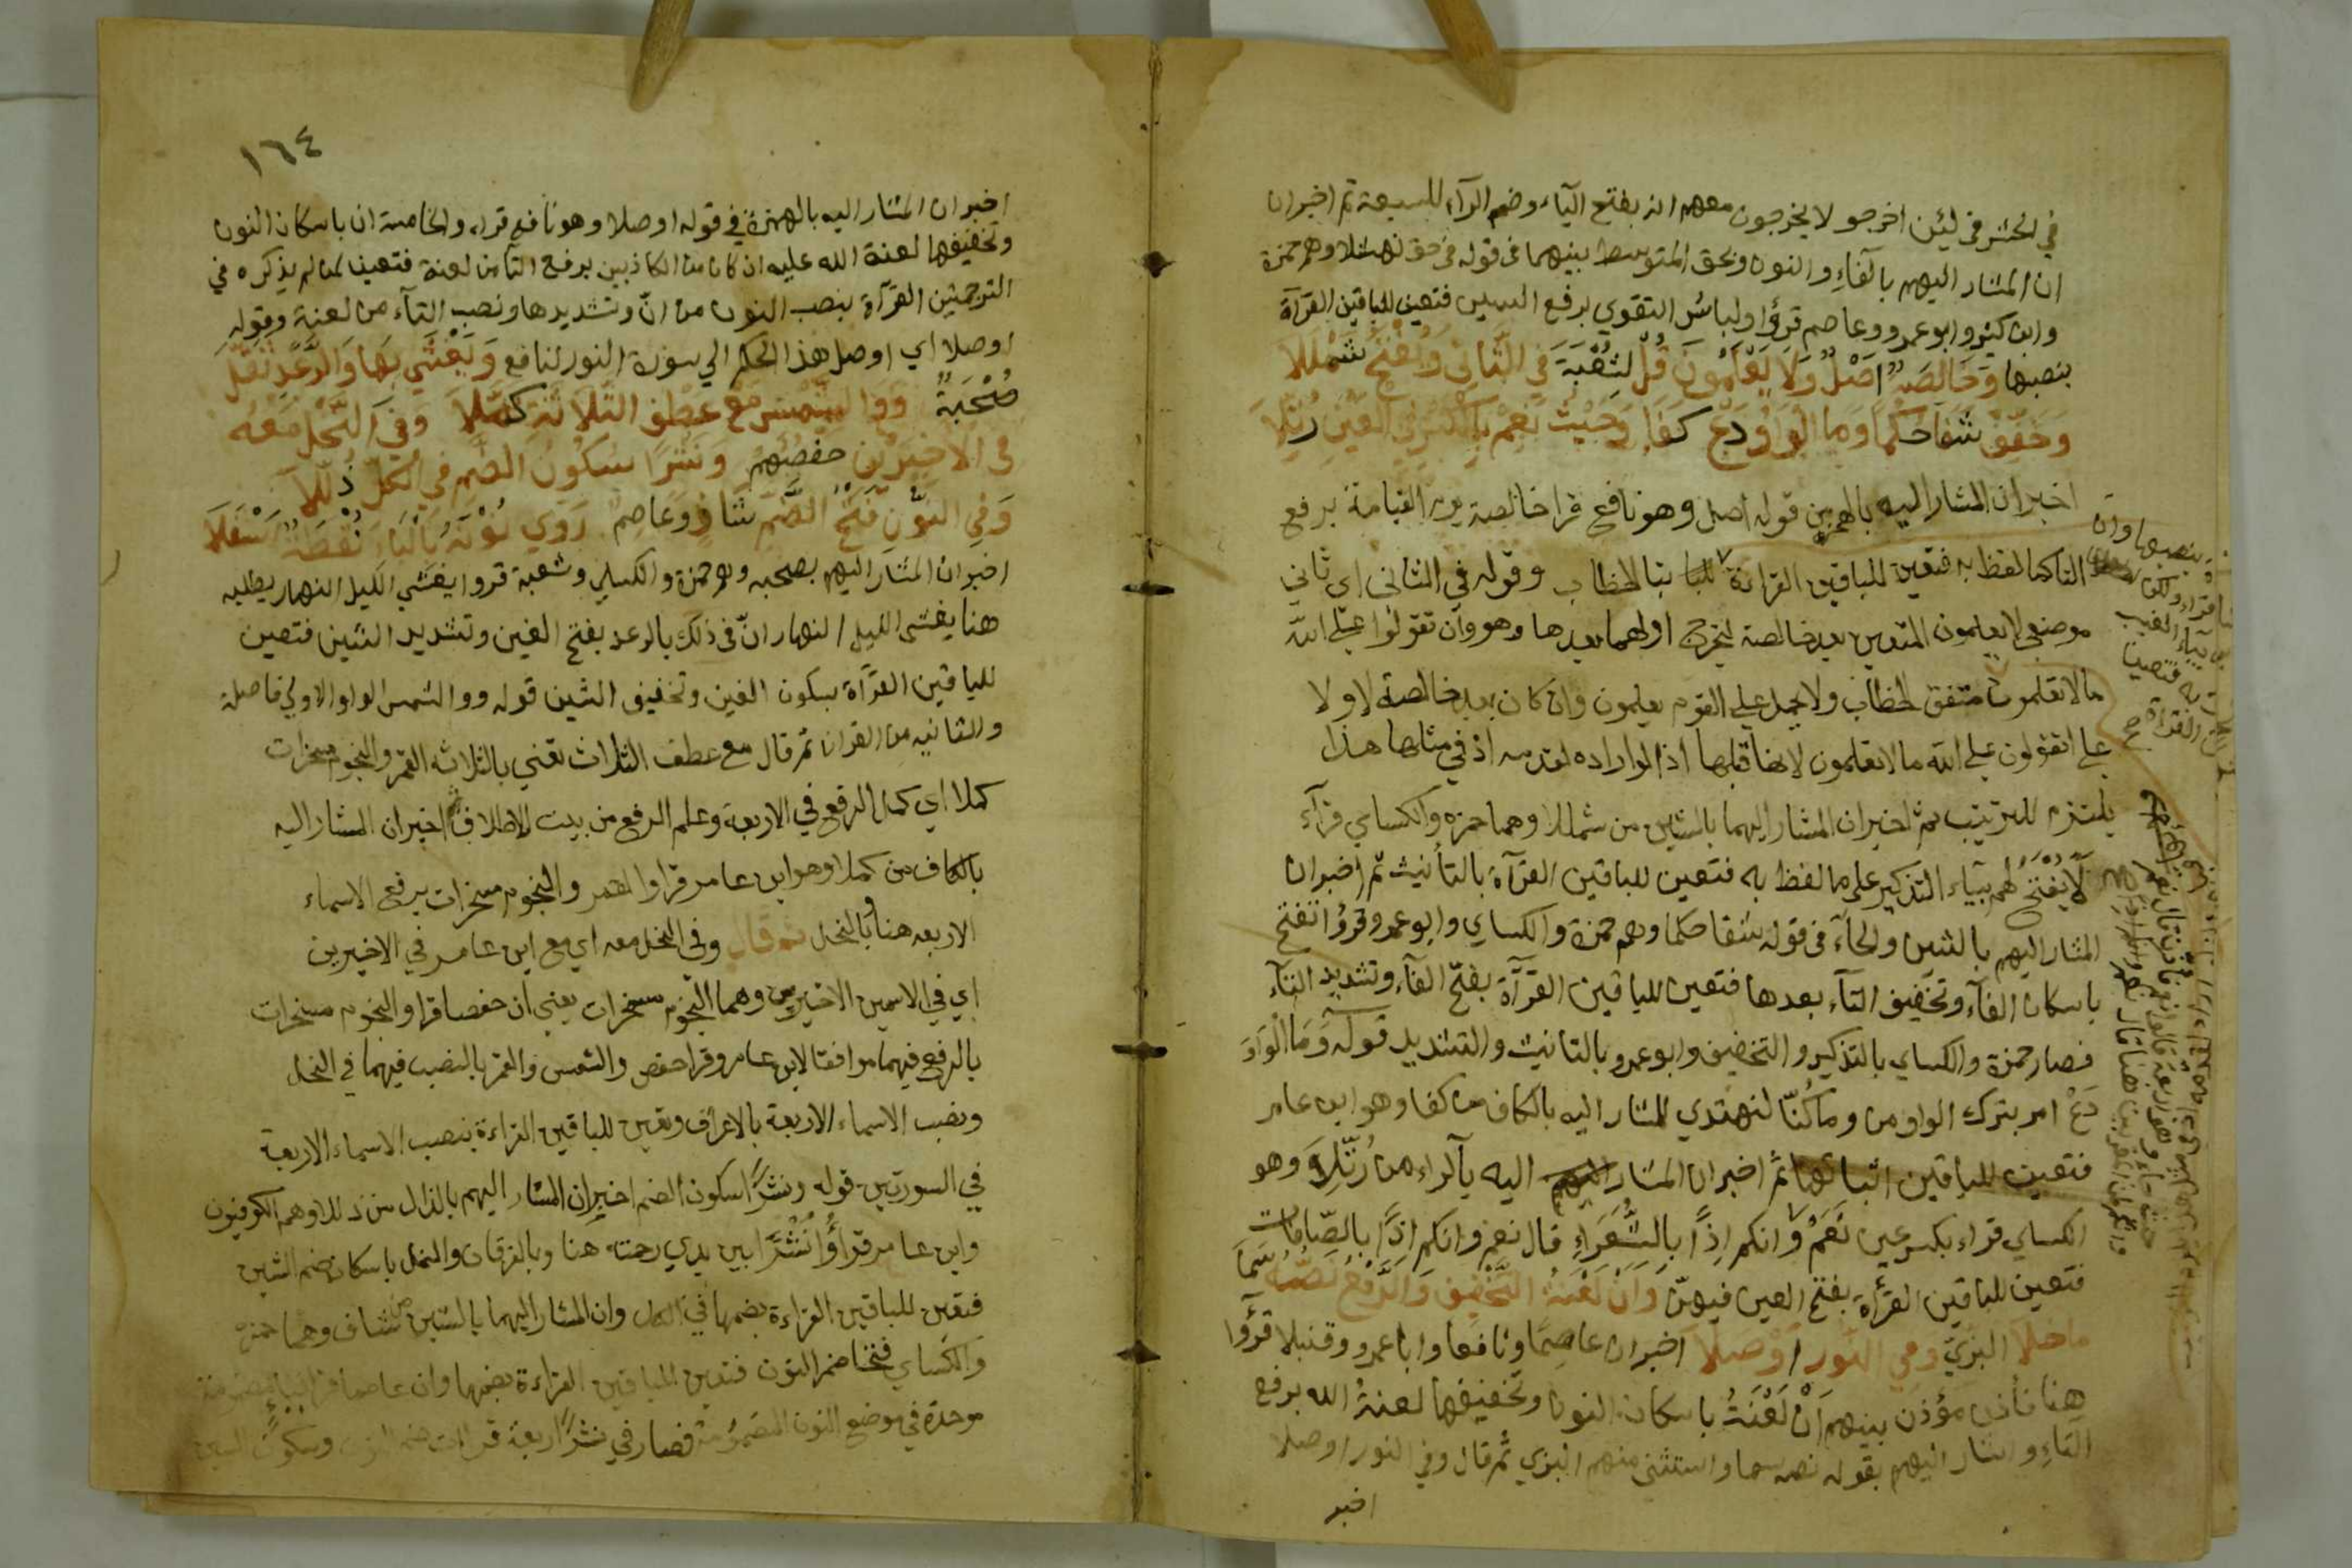 في الحشر في لئن اخرجو لا يخرجون معهم انه بفتح اليآء وضم الرآء للسبعة ثم اخبر ان
ان المشار اليهم بالفاء والنون وبحق المتوسط بينهما في قوله في حق نهشلا وهم حمزة
وابن كثير وابو عمرو وعاصم قرؤا ولباسُ التقوي برفع السين فتعين للباقين القرآة
بنصبها وَخَالِصَةٌ اَصْلٌ وَلَا يَعْلَمُونَ قُلْ لِشُعْبَةَ فِي الثَّانِي وَيُفْتَحُ شَمْلَلَا
وَخَفِّفْ شَفَا حُكْمًا وَمَا الْوَاوُ دَعْ كَفَا وَحَيْثُ نَعَمْ بِالْكَسْرِ فِي الْعَيْنِ رُتِّلَا
اخبر ان المشار اليه بالهمز من قوله اصل وهو نافع قرا خالصة يوم القيامة برفع
التا كما لفظ به فتعين للباقين القراءة بتا الخطاب وقوله في الثاني اي ثاني
موضعي لا يعلمون المتعين بعد خالصة ليخرج اولهما بعدها وهو وان تقولوا علي الله
ما لا تعلمون متفق الخطاب ولا يحمل علي القوم يعلمون وان كان بعد خالصة لاولا
علي اتقولون علي الله ما لا تعلمون لانها قبلها اذ لو اراده لقدمه اذ في مثلها هذا
يلتزم للترتيب ثم اخبر ان المشار اليهما بالشين من شمللا وهما حمزه والكساي قرآء
لَا يُفْتَحُ لهم بيآء التذكير علي ما لفظ به فتعين للباقين القرآة بالتأنيث ثم اخبر ان
المشار اليهم بالشين والحآء في قوله شفا حكما وهم حمزة والكساي وابو عمرو قرؤا تفتح
باسكان الفآء وتخفيف التآء بعدها فتعين للباقين القرآة بفتح الفآء وتشديد التآء
فصار حمزة والكساي بالتذكير والتخفيف وابو عمرو بالتانيث والتشديد قوله وَمَا الْوَاوَ
دَعْ امر بترك الواو من وما كُنّا لنهتدي للمشار اليه بالكاف من كفا وهو ابن عامر
فتعين للباقين اثباتها ثم اخبر ان المشار اليه بآلراء من رُتِّلَا وهو
الكساي قراء بكسر عين نَعَمْ وانكم اِذًا بِالشُّعَرَاءِ قال نعم وانكم اذًا بِالصّافات
فتعين للباقين القرأة بفتح العين فيهنّ وَاَنْ لَعْنَةُ التَّخْفِيفُ وَالرَّفْعُ نَصُّهُ سَمَا
مَا خَلَا الْبَزِّي وَفِي النُّورِ اُوْصِلَا اخبر ان عاصِمًا ونافعا وابا عمرو وقنبلا قرؤا
هنا فأذن مؤذن بينهم اَنْ لَعْنَتُ باسكان النون وتخفيفها لعنةُ الله برفع
التاء واشار اليهم بقوله نصه سما واستثني منهم البزي ثم قال وفي النور اوصلا
اخبر
١٦٤
اخبر ان المشار اليه بالهمزة في قوله اوصلا وهو نافع قراء والخامسة ان باسكان النون
وتخفيفها لعنة الله عليه ان كان من الكاذبين برفع التا من لعنة فتعين لمن لم يذكره في
الترجمتين القرآة بنصب النون من انّ وتشديدها ونصب التآء من لعنة وقوله
اوصلا اي اوصل هذا الحكم الي سورة النور لنافع وَيَغْشَي بِهَا وَالرَّعْدِ ثَقَّلَ
صُحْبَةٌ وَوَالشَّمْسُ مَعْ عَطْفِ الثَّلَاثَةِ كَمَّلَا وَفِي النَّحْلِ مَعْهُ
فِي الْاَخِيرَيْنِ حَفْصُهُمْ وَنَشْرًا سُكُونُ الضَّمِّ فِي الْكُلِّ ذُلِّلَا
وَفِي النُّونِ فَتْحُ الضَّمِّ شَافٍ وَعَاصِمٌ رَوَي نُوْنَهُ بِالْبَاءِ نُقْطَةٌ اَسْفَلَا
اخبر ان المشار اليهم بصحبه وهم حمزة والكساي وشعبة قروا يغشي الليل النهار يطلبه
هنا يغشي الليل النهار انّ في ذلك بالرعد بفتح الغين وتشديد الشين فتعين
للباقين القرآة بسكون الغين وتخفيف الشين قوله ووالشمس الواو الاولي فاصلة
والثانيه من القران ثم قال مع عطف الثلاث يعني بالثلاثة القمر والنجوم مسخرات
كملا اي كمل الرفع في الاربعة وعلم الرفع من بيت الاطلاق اخبر ان المشار اليه
بالكاف من كملا وهو ابن عامر قرا والقمر والنجوم مسخرات برفع الاسماء
الاربعه هنا وبالنحل ثم قال وفي النحل معه اي مع ابن عامر في الاخيرين
اي في الاسمين الاخيرين وهما النجوم مسخرات يعني ان حفصا قرا والنجوم مسخرات
بالرفع فيهما موافقا لابن عامر وقرا حفص والشمس والقمر بالنصب فيهما في النحل
ونصب الاسماء الاربعة بالاعراف وتعين للباقين القراءة بنصب الاسماء الاربعة
في السورتين قوله ونشرًا سكون الضم اخبر ان المشار اليهم بالذال من ذللا وهم الكوفيون
وابن عامر قرأُوا نُشْرًا بين يدي رحمته هنا وبالفرقان والنمل باسكان ضم الشين
فتعين للباقين القراءة بضمها في الكل وان المشار اليهما بالشين من شاف وهما حمزه
والكساي فتحا ضم النون فتعين للباقين القراءة بضمها وان عاصما قرا
موحدة في موضع النون المضمومة فصار في نشرًا اربعة